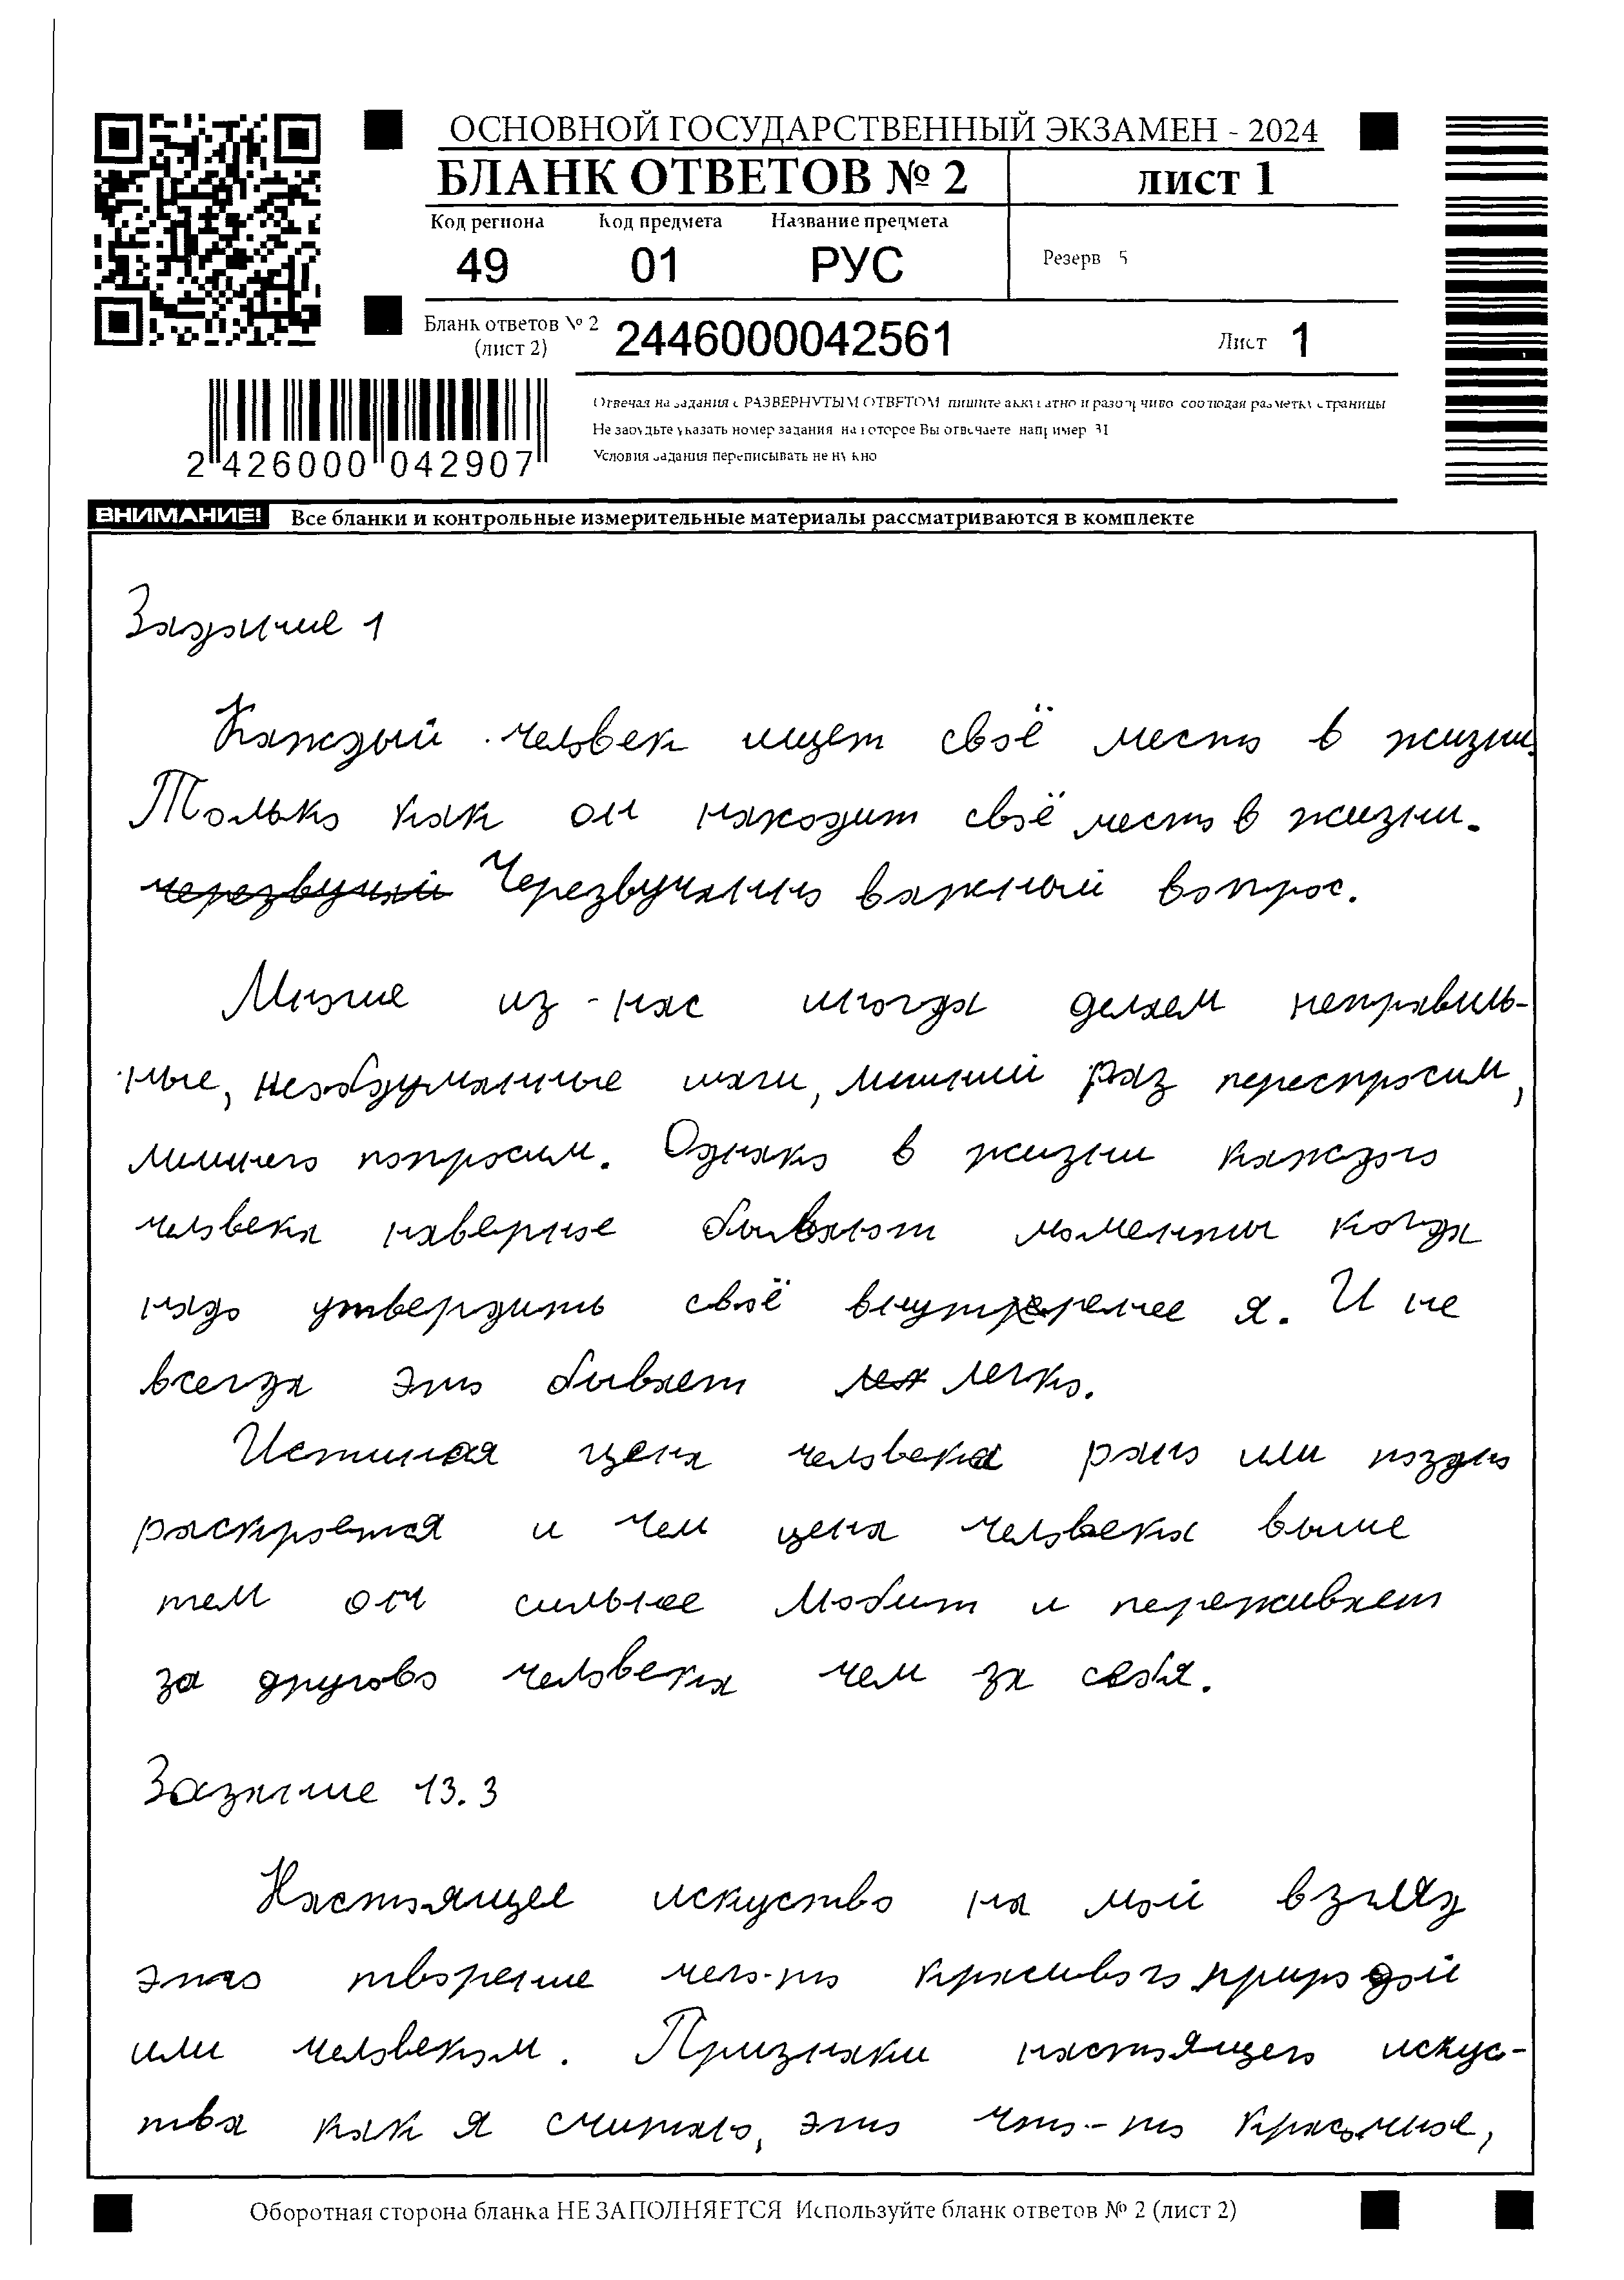 ОСНОВНОЙ ГОСУДАРСТВЕННЫЙ ЭКЗАМЕН - 2024
БЛАНК ОТВЕТОВ № 2
ЛИСТ 1
Код региона Код предмета Название предмета
49 01 РУС
Резерв 5
Бланк ответов № 2
(лист 2)
2446000042561
Лист 1
2 426000 042907
Отвечая на задания с РАЗВЕРНУТЫМ ОТВЕТОМ пишите аккуратно и разборчиво соблюдая разметку страницы
Не забудьте указать номер задания на которое Вы отвечаете например 31
Условия задания переписывать не нужно
ВНИМАНИЕ! Все бланки и контрольные измерительные материалы рассматриваются в комплекте
Задание 1
Каждый человек ищет своё место в жизни.
Только как он находит своё место в жизни.
Черезвучанно важный вопрос.
Многие из-нас иногда делаем неправиль-
ные, необдуманные шаги, лишний раз переспросим,
лишнего попросим. Однако в жизни каждого
человека наверное бывают моменты когда
надо утвердить своё внутреренее я. И не
всегда это бывает легко.
Истиная цена человека рано или поздно
раскроется и чем цена человека выше
тем он сильнее любит и переживает
за другово человека чем за себя.
Задание 13.3
Настоящее искуство на мой взгляд
это творение чего-то красивого природой
или человеком. Признаки настоящего искус-
тва как я считаю, это что-то красочное,
Оборотная сторона бланка НЕ ЗАПОЛНЯЕТСЯ Используйте бланк ответов № 2 (лист 2)